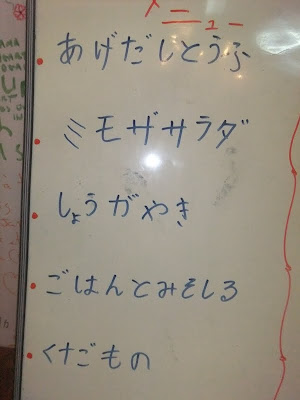 メニュー
あげだしとうふ
ミモザサラダ
しょうがやき
ごはんとみそしる
くだごもの